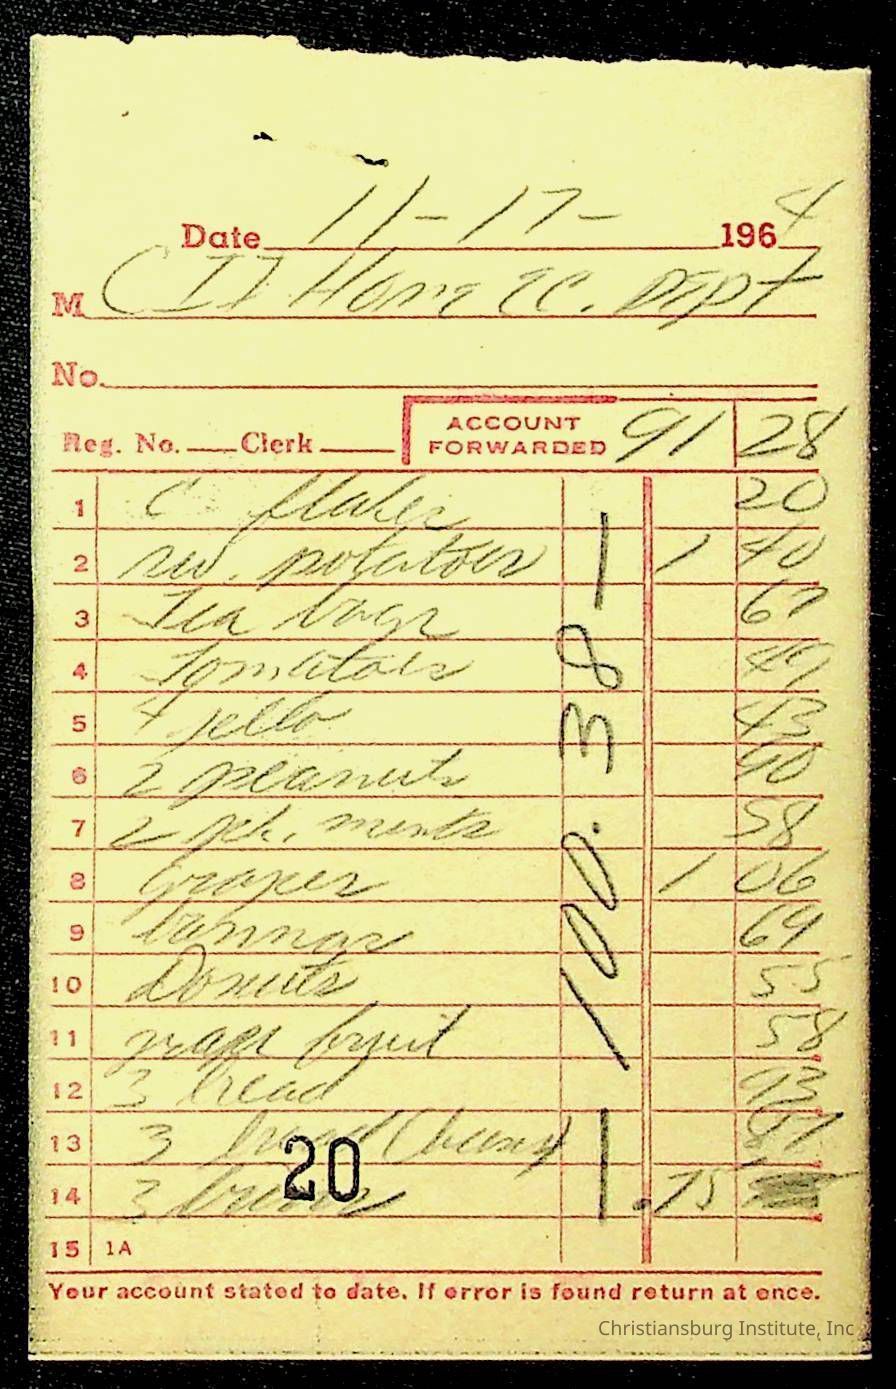 Date 11-17- 1964
M CII Home EC. Dept
No.
Reg. No. Clerk ACCOUNT FORWARDED 91 28
1 C flakes 20
2 sw. potatoes 1 40
3 Tea bags 67
4 Tomatoes 47
5 4 jello 43
6 2 peanuts 90
7 2 pk. mints 58
8 Grapes 1 06
9 69
10 Donuts 55
11 grape fruit 58
12 3 bread 93
13 3 bread 87
14 3 .75
15 1A
— 100.38 —
20
Your account stated to date. If error is found return at once.
Christiansburg Institute, Inc